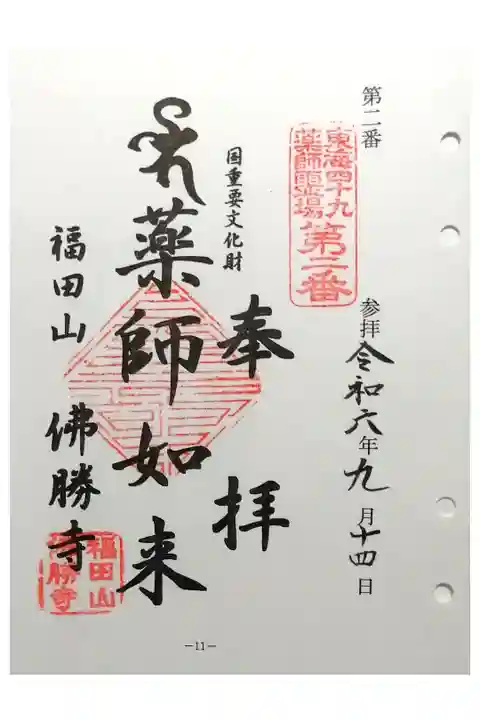 第二番
東海四十九
薬師霊場
第二番
参拝令和六年九月十四日
奉拝
国重要文化財
薬師如来
福田山 佛勝寺
福田山
佛勝寺
-11-